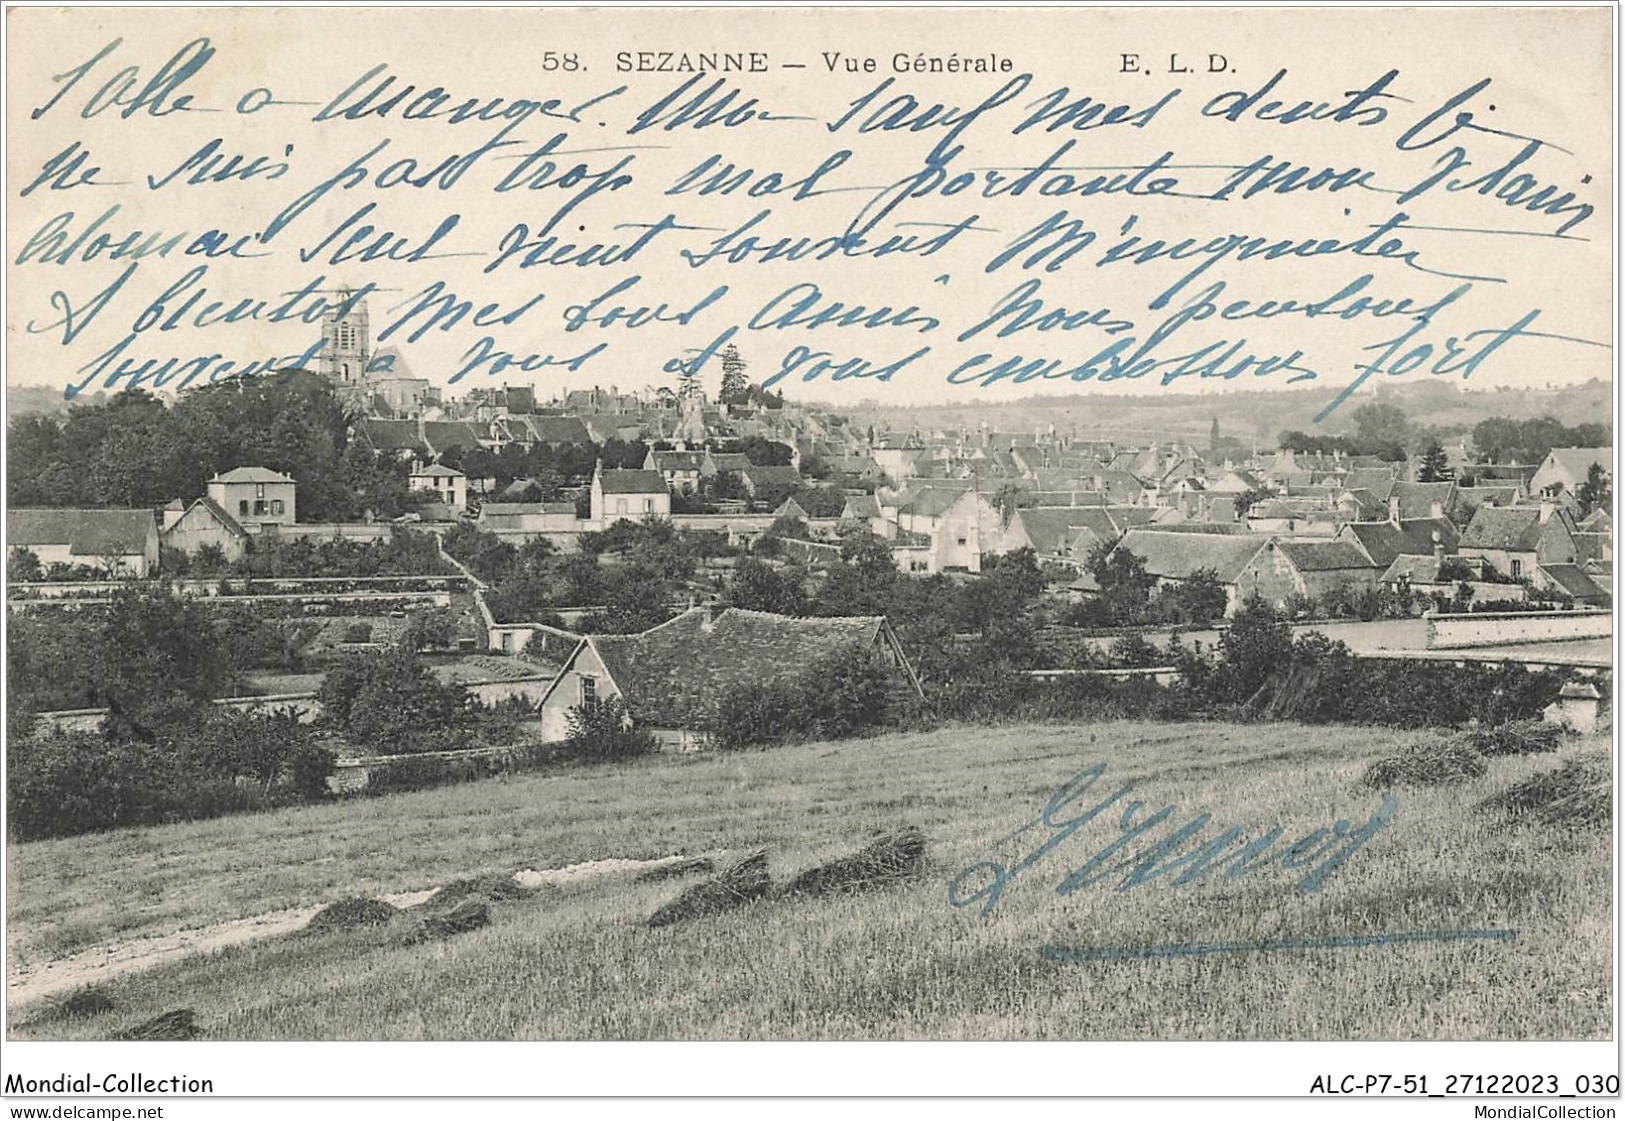 58. SEZANNE — Vue Générale E. L. D.
Salle a Manger. Moi sauf mes dents
ne suis pas trop mal portante mon vilain
estomac seul vient souvent m'inquieter
A bientot mes bons amis nous pensons
souvent a vous et vous embrassons fort
Mondial-Collection
ALC-P7-51_27122023_030
MondialCollection.com
MondialCollection